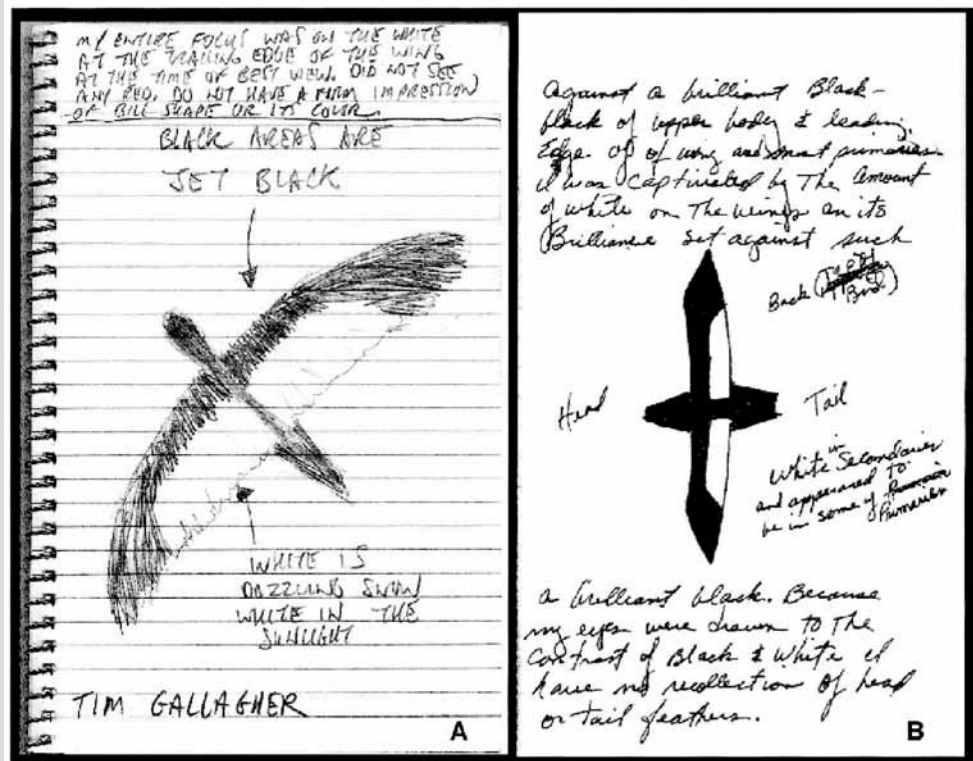 MY ENTIRE FOCUS WAS ON THE WHITE
AT THE TRAILING EDGE OF THE WING
AT THE TIME OF BEST VIEW. DID NOT SEE
ANY RED. DO NOT HAVE A FIRM IMPRESSION
OF BILL SHAPE OR ITS COLOR.
BLACK AREAS ARE
JET BLACK
WHITE IS
DAZZLING SNOW
WHITE IN THE
SUNLIGHT
TIM GALLAGHER
A
Against a brilliant Black-
black of upper body & leading
Edge of of wing and most primaries
I was captivated by The Amount
of white on The wings an its
Brilliance Set against such
Back
Bird)
Head
Tail
White in
White Secondaries
and appeared to
be in some of
Primaries
a brilliant black. Because
my eyes were drawn to The
Contrast of Black & White I
have no recollection of head
or tail feathers.
B